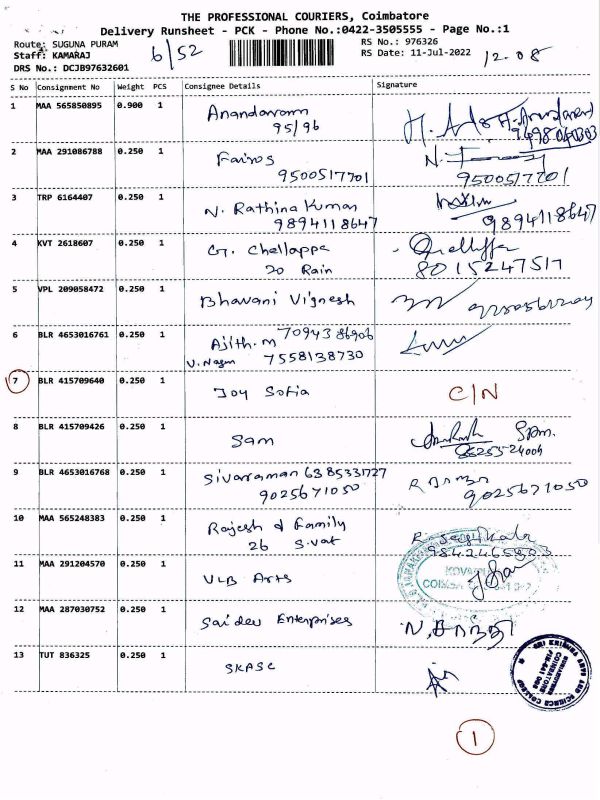 THE PROFESSIONAL COURIERS, Coimbatore
Delivery Runsheet - PCK - Phone No.:0422-3505555 - Page No.:1
Route: SUGUNA PURAM 6/52 RS No.: 976326
Staff: KAMARAJ RS Date: 11-Jul-2022 12.08
DRS No.: DCJB97632601
S No Consignment No Weight PCS Consignee Details Signature
1 MAA 565850895 0.900 1 Anandavarm
95/96
2 MAA 291086788 0.250 1 Fairos N.
9500517701 9500517701
3 TRP 6164407 0.250 1 N. Rathina Kumar
9894118647 9894118647
4 KVT 2618607 0.250 1 G. Chellappa
20 Rain 8015247517
5 VPL 209058472 0.250 1 Bhavani Vignesh
6 BLR 4653016761 0.250 1 Ajith.M 7094386906
V.Nagm 7558138730
7 BLR 415709640 0.250 1 Joy Sofia C/N
8 BLR 415709426 0.250 1 Sam
9 BLR 4653016768 0.250 1 Sivaraman 6385331727
9025671050 9025671050
10 MAA 565248383 0.250 1 Rajesh & Family
26 S.vat
11 MAA 291204570 0.250 1 VLB Arts
12 MAA 287030752 0.250 1 Saidev Enterprises
13 TUT 836325 0.250 1 SKASC
SRI KRISHNA ARTS AND SCIENCE COLLEGE
COIMBATORE
1